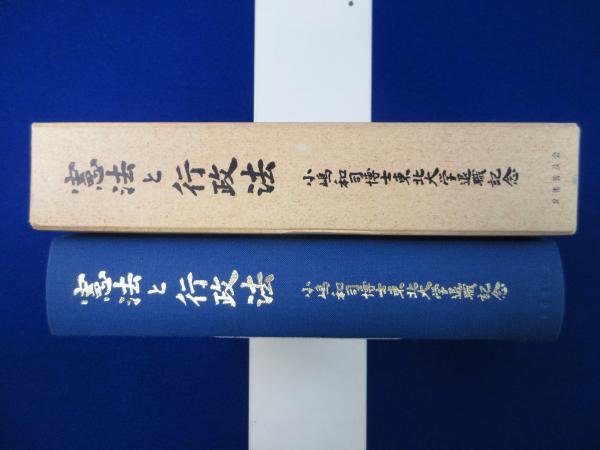 憲法と行政法
小嶋和司博士東北大学退職記念
良書普及会
憲法と行政法
小嶋和司博士東北大学退職記念